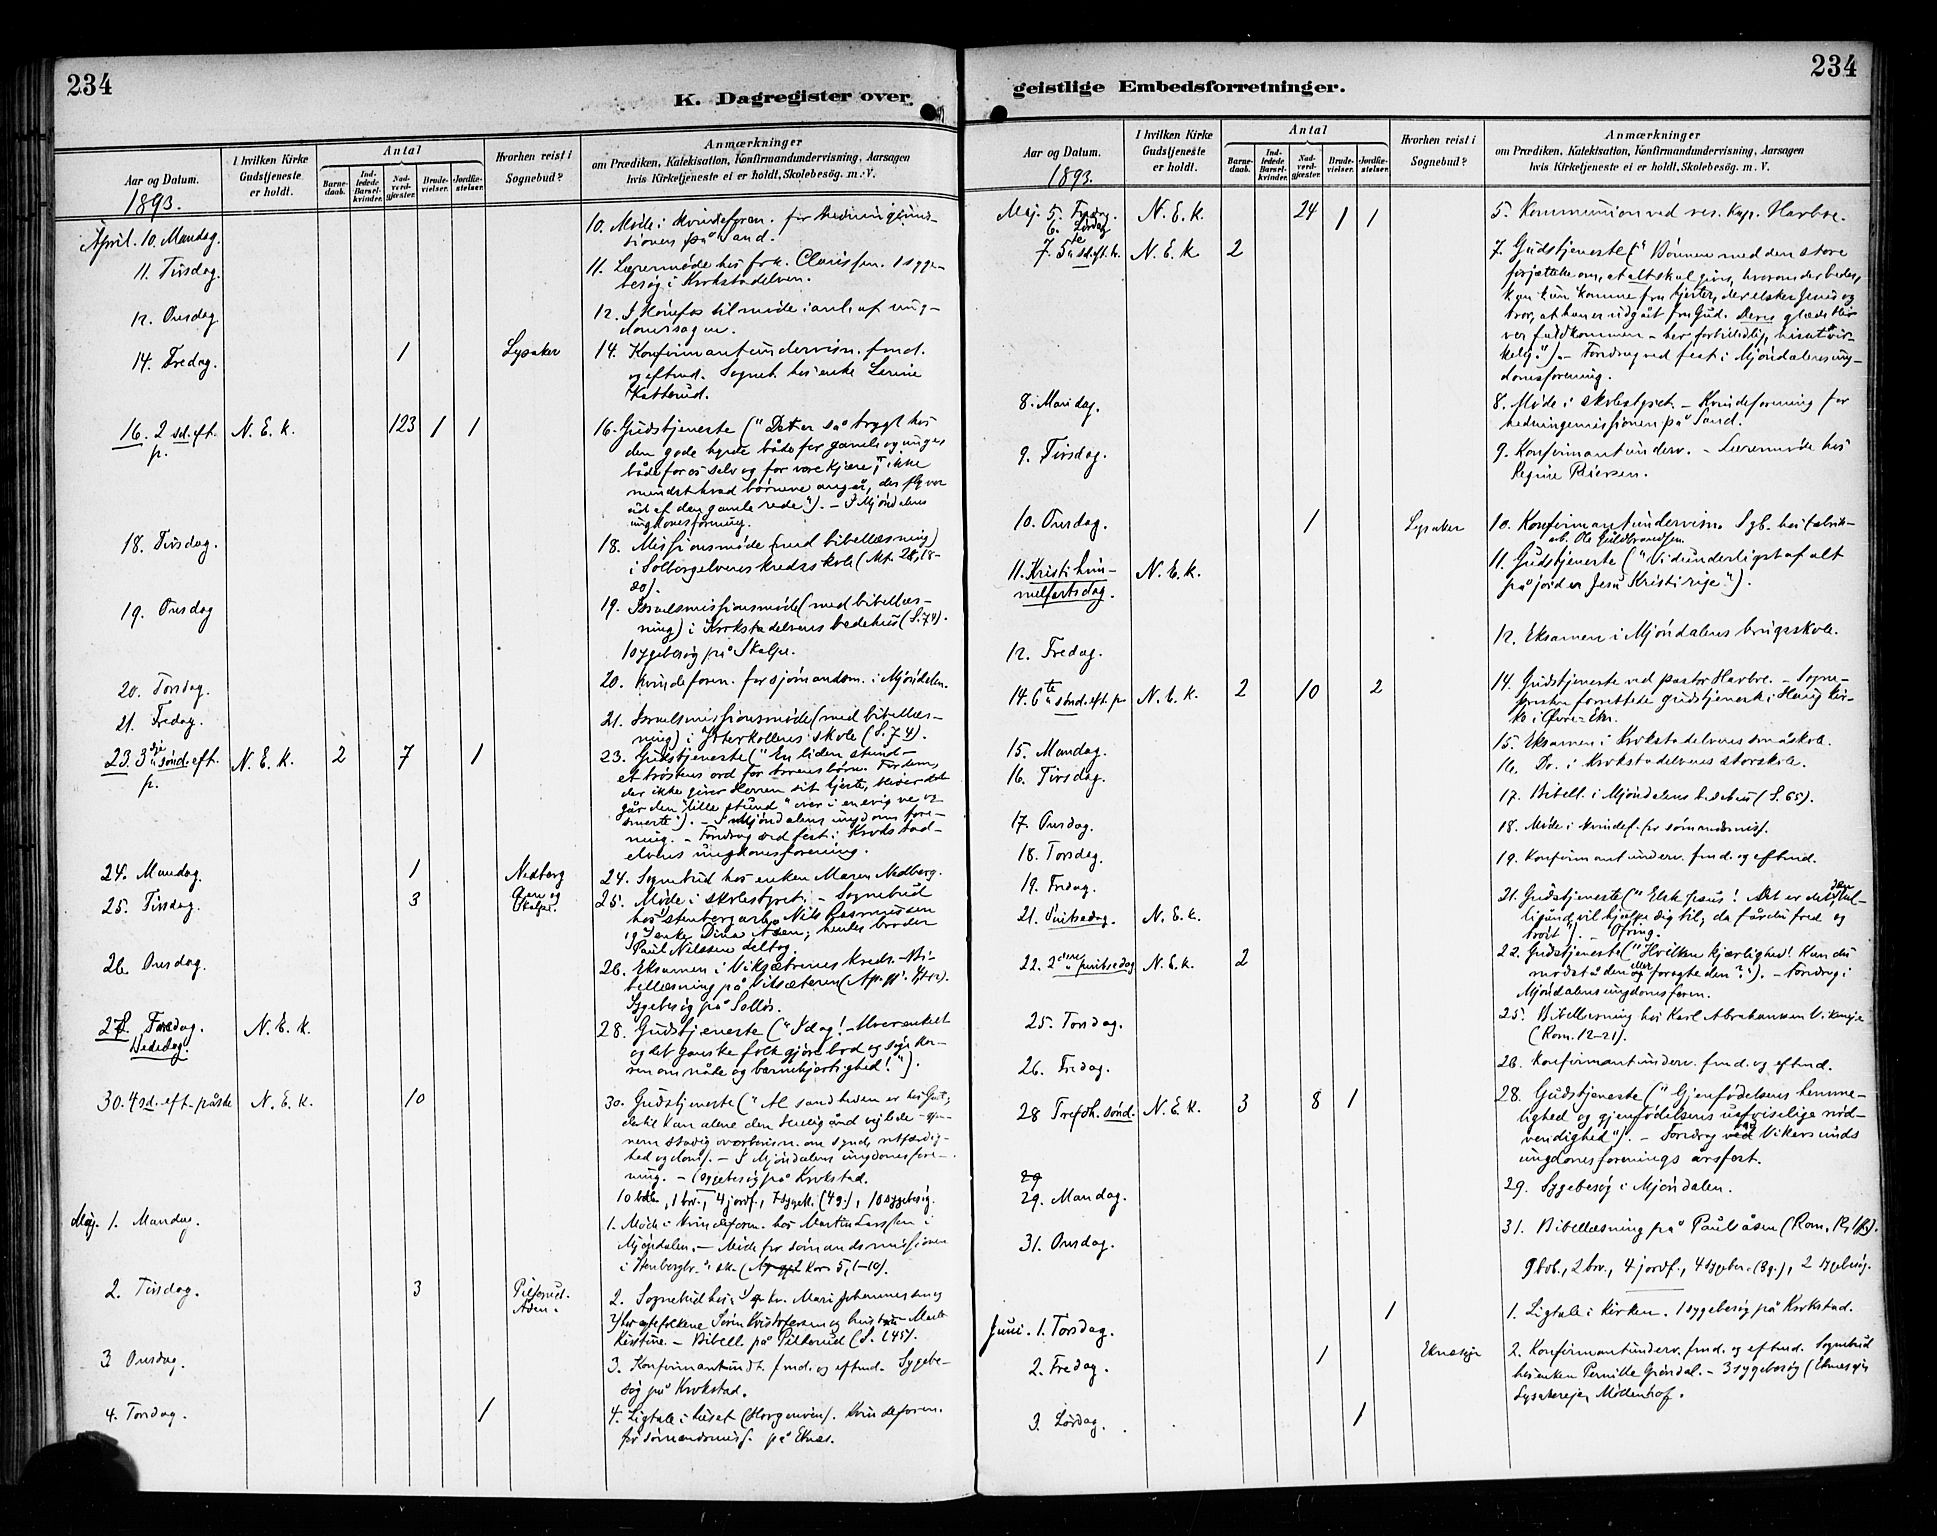 234
K. Dagregister over
Aar og Datum.
1893.
I hvilken Kirke
Gudstjeneste
er holdt.
Antal
Barne-
daab.
Ind-
ledede
Barsel-
kvinder.
Nad-
verd-
gjester.
Brude-
vielser.
Jordfæ-
stelser.
Hvorhen reist i
Sognebud?
Anmærkninger
om Prædiken, Katekisation, Konfirmandundervisning, Aarsagen
hvis Kirketjeneste ei er holdt, Skolebesøg. m. V.
April. 10. Mandag.
10. Møde i kvindeforen. for hedningemis-
sionen på Sand.
11. Tirsdag.
11. Lærermøde hos frk. Clausen. 1 syge-
besøg i Krokstadelven.
12. Onsdag
12. I Hønefos til møde i anl. af ung-
domssagen.
14. Fredag. 1 Lysaker
14. Konfirmantundervisn. fmd.
og eftmd. Sogneb. hos enke
16. 2 sd. eft. p. N. E. k. 123 1 1
16. Gudstjeneste ("Det er så trygt hos
den gode hyrde både for gamle og unge,
både for os selv og for vore kjære, ikke
mindst hvad børnene angår, der fly
ud af den gamle rede"). – I Mjøndalens
18. Tirsdag.
18. Missionsmøde (med bibellæsning)
i Solbergelvens kredsskole (Mt. 28, 18-
20).
19. Onsdag
19. Israelsmissionsmøde (med bibellæs-
ning) i Krokstadelvens bedehus (S. 74).
1 sygebesøg på Skalpe.
20. Torsdag.
20. Kvindeforen. for sjømandsm. i Mjøndalen.
21. Fredag.
21. Israelsmissionsmøde (med bibellæs-
ning) i Ytterkollens skole (S. 74).
23. 3dje sønd. eft. p. N. E. k. 2 7 1
23. Gudstjeneste ("En liden stund –
et trøstens ord for troens børn. For dem,
der ikke giver Herren sit hjerte, bliver det
går den "lille stund" over i en evig ve og
smerte"). – I Mjøndalens ungdomsfore-
ning. – Foredrag ved fest i Krokstad-
elvens
24. Mandag. 1 Nedberg
24. Sognebud hos enken Maren Nedberg.
25. Tirsdag. 3 Aasen og
Skalpe.
25. Møde i skolestyret. – Sognebud
hos stenbergarb. Nils Rasmussen
og enke Dina Aasen; hendes broder
Paul Nilssen deltog.
26 Onsdag.
26. Eksamen i Viksætrenes kreds. – Bi-
bellæsning på
Sygebesøg på Solløs.
28. Fredag. N. E. k.
Bededag.
28. Gudstjeneste ("I dag! – Hver enkelt
og det ganske folk gjøre bod og søge Her-
ren om nåde og barmhjertighed!").
30. 4 sd. eft. påske N. E. k. 10
30. Gudstjeneste ("Al sandheden er hos Gud;
derhi kan alene den Hellig ånd vejlede – gjen-
nem stadig overbevisn. om synd, retfærdig-
hed og dom). – I Mjøndalens ungdomsfore-
ning. – 1 sygebesøg på Krokstad.
10 bdb., 1 brv., 4 jordf., 7 sygek. (4 g.), 10 sygebesøg.
Maj. 1. Mandag.
1. Møde i kvindeforen. hos Martin Larssen i
Mjøndalen. – Møde for sømandsmissionen
i Stenbergbr.s sk. (2 Kor. 5, 1–10).
2. Tirsdag. 3 Pilterud.
Aasen.
2. Sognebud hos Mari Johannesen og
ægtefolkene Søren Kristofersen og hustru Marte
Kirstine. – Bibell. på Pilterud (S. 145).
3 Onsdag.
3. Konfirmantundv. fmd. og eftmd. Sygebe-
søg på Krokstad.
4. Torsdag. 1
4. Ligtale i huset (Horgenveien). Kvindeforen.
for sømandsmiss. på Eknes.
234
geistlige Embedsforretninger.
Aar og Datum.
1893.
I hvilken Kirke
Gudstjeneste
er holdt.
Antal
Barne-
daab.
Ind-
ledede
Barsel-
kvinder.
Nad-
verd-
gjester.
Brude-
vielser.
Jordfæ-
stelser.
Hvorhen reist i
Sognebud?
Anmærkninger
om Prædiken, Katekisation, Konfirmandundervisning, Aarsagen
hvis Kirketjeneste ei er holdt, Skolebesøg. m. V.
Maj. 5. Fredag. N. E. k. 24 1 1
5. Kommunion ved res. kap. Harboe.
6. Lørdag
7. 5te sd. eft. p. N. E. k. 2
7. Gudstjeneste ("Bønnen med den store
forjættelse om, at alt skal gives, hvorom der bedes,
kan kun komme fra hjerter, der elsker Jesus og
tror, at han er udgået fra Gud. Deres glæde bli-
ver fuldkommen – her forbilledlig, hisset vir-
kelig."). – Foredrag ved fest i Mjøndalens ung-
domsforening.
8. Mandag.
8. Møde i skolestyret. – Kvindeforening for
hedningemissionen på Sand.
9. Tirsdag.
9. Konfirmantunderv. – Læremøde hos
Regine Riersen.
10. Onsdag. 1 Lysaker
10. Konfirmantundervisn. Sgb. hos fabrik-
arb. Ole Guldbrandsen.
11. Kristi him-
melfartsdag. N. E. k.
11. Gudstjeneste ("Vidunderligst af alt
på jord er Jesu Kristi rige").
12. Fredag.
12. Eksamen i Mjøndalens brugsskole.
14. 6te sønd. eft. p N. E. k. 2 10 2
14. Gudstjeneste ved pastor Harboe. – Sogne-
presten forrettede gudstjeneste i Haug kir-
ke i Øvre-Eker.
15. Mandag.
15. Eksamen i Krokstadelvens småskole.
16. Tirsdag.
16. Do. i Krokstadelvens storskole.
17. Onsdag.
17. Bibell. i Mjøndalens bedehus (S. 65).
18. Torsdag.
18. Møde i kvindef. for sømandsmiss.
19. Fredag.
19. Konfirmantunderv. fmd. og eftmd.
21. Pintsedag. N. E. k.
21. Gudstjeneste ("Elsk Jesus! Det er det, den Hel-
ligånd vil hjælpe dig til; da får du fred og
trøst"). Ofring.
22. 2den pintsedag N. E. k. 2
22. Gudstjeneste ("Hvilken kjærlighed! Kan du
modstå den eller foragte den?"). – Foredrag i
Mjøndalens ungdomsforen.
25. Torsdag.
25. Bibellæsning hos Karl Abrahamsen Vikeneje
(Rom. 12–21).
26. Fredag.
26. Konfirmantunderv. fmd. og eftmd.
28 Trefoh. sønd. N. E. k. 3 8 1
28. Gudstjeneste ("Gjenfødelsens hemme-
lighed og gjenfødelsens uafviselige nød-
vendighed"). – Foredrag ved Vikersunds
ungdomsforenings årsfest.
29
29. Mandag.
29. Sygebesøg i Mjøndalen.
31. Onsdag.
31. Bibellæsning på Paulsåsen (Rom. 12, 1 ff.).
9 bdb., 2 brv., 4 jordf., 4 sygeber. (3 g.), 2 sygebesøg.
Juni. 1. Torsdag. 1
1. Ligtale i kirken. 1 sygebesøg på Krokstad.
2. Fredag. 1 Eknæseje
2. Konfirmantunderv. fmd. og eftmd. Sognebud
hos enken Pernille Grøndal. – 3 sygebesøg (Eknæseje,
Lysakereje, Mødenhof.
3. Lørdag. 1